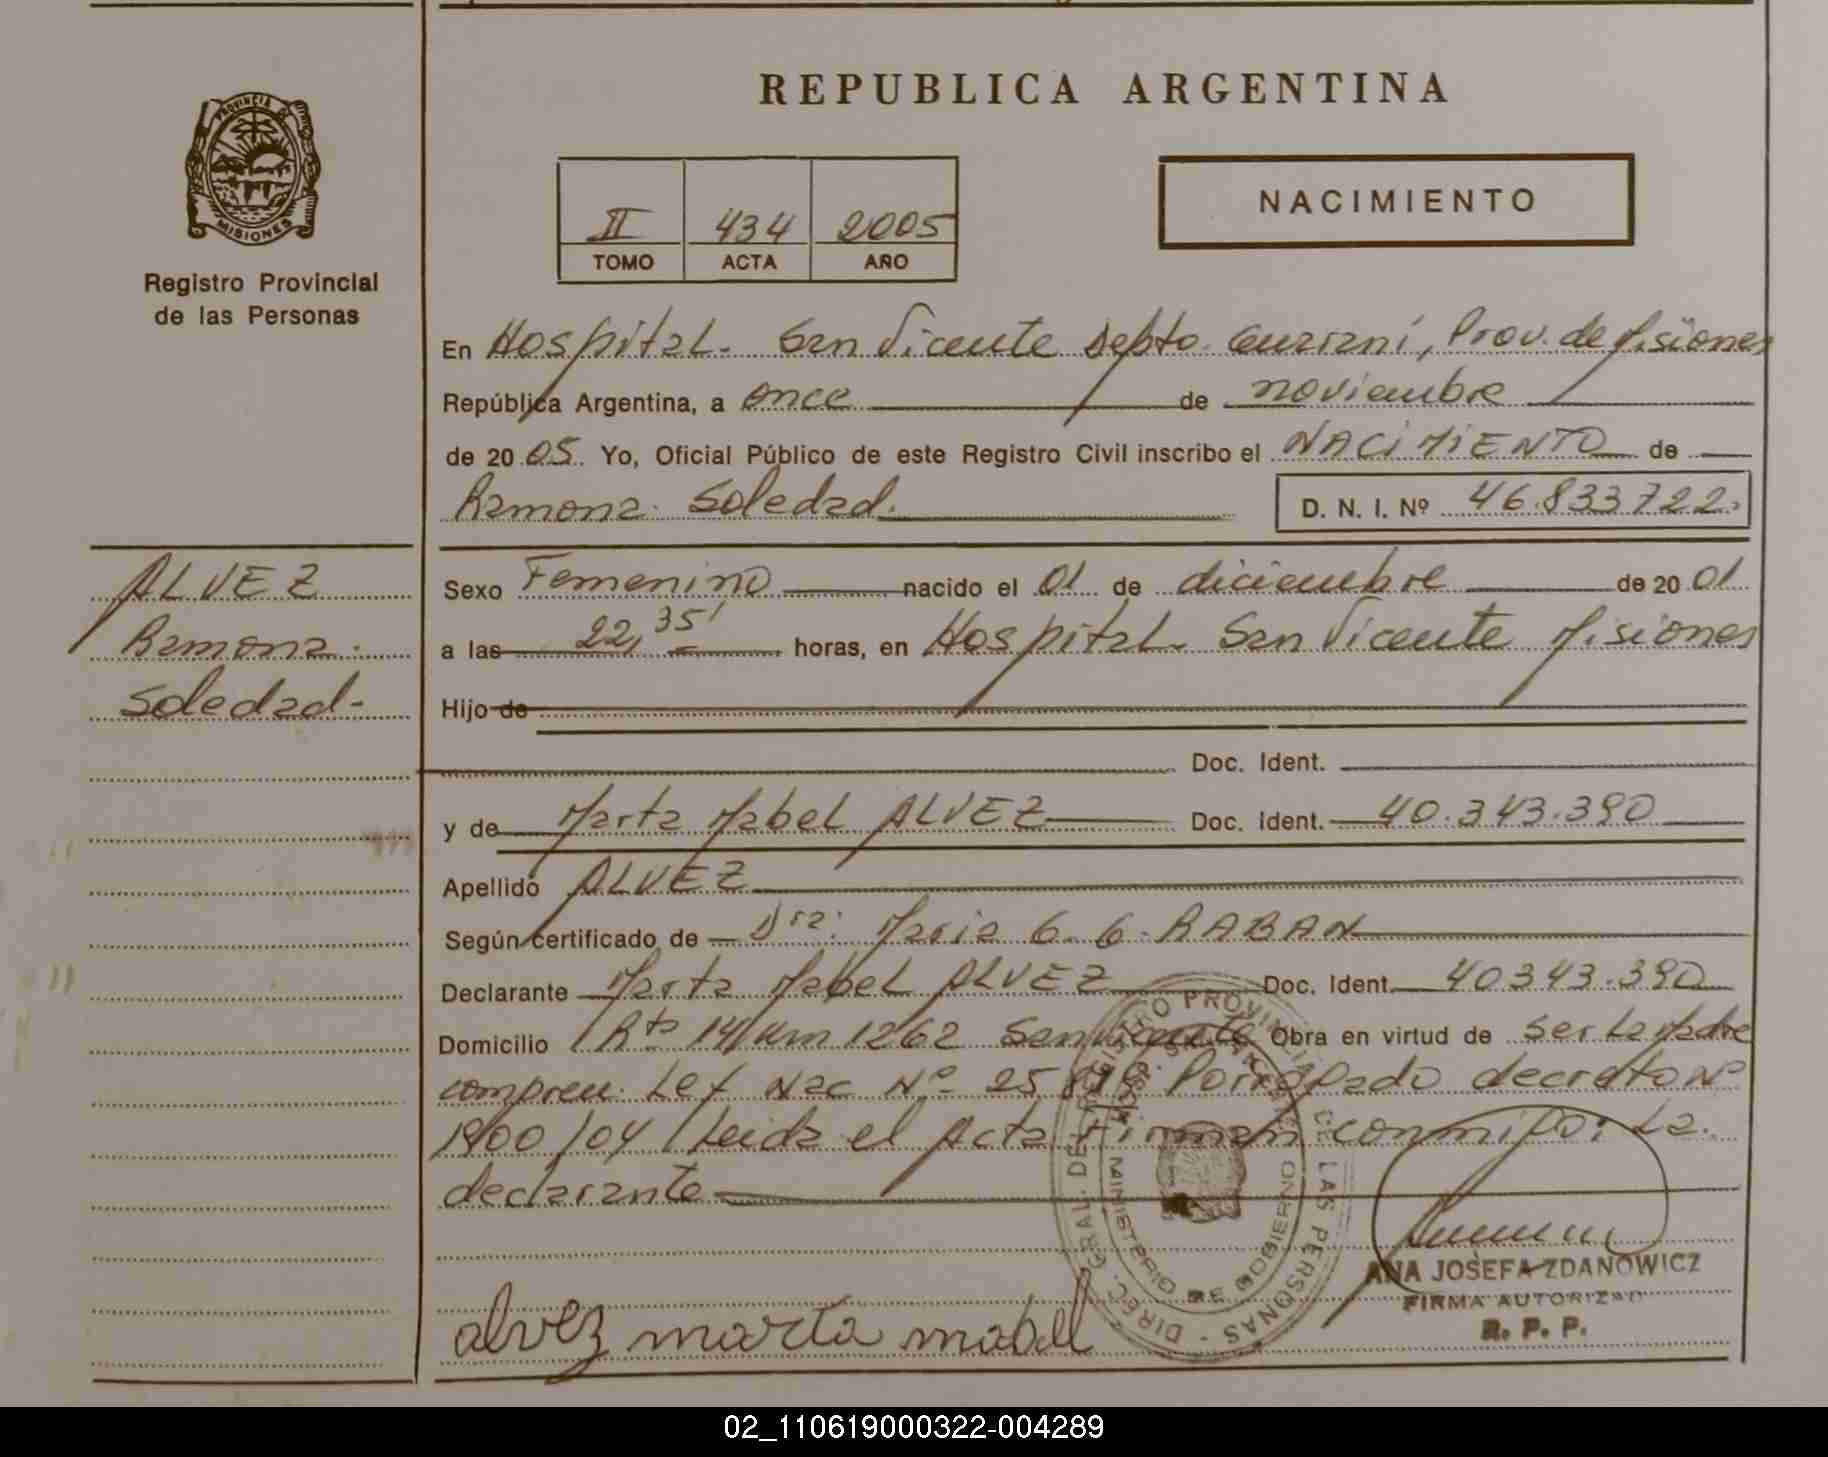 REPUBLICA ARGENTINA
PROVINCIA DE
MISIONES
Registro Provincial
de las Personas
II 434 2005
TOMO ACTA AÑO
NACIMIENTO
En Hospital. San Vicente Depto. Guaraní, Prov. de Misiones
República Argentina, a once de noviembre
de 20 05. Yo, Oficial Público de este Registro Civil inscribo el NACIMIENTO de
Ramona. Soledad.
D. N. I. Nº 46.833722.
ALVEZ
Ramona.
Soledad-
Sexo Femenino nacido el 01 de diciembre de 20 01
a las 22,35' horas, en Hospital. San Vicente Misiones
Hijo de
Doc. Ident.
y de Marta Mabel ALVEZ Doc. Ident. 40.343.390
Apellido ALVEZ
Según certificado de Dra: Maria G. G. RABAN
Declarante Marta Mabel ALVEZ Doc. Ident. 40343.390
Domicilio Rta 14 Km 1262 San Vicente Obra en virtud de ser La Madre
compren. Ley Nac Nº 25.819. Porrogado decreto Nº
1900/04 Leida el Acta Firman conmigo: La.
declarante
DIREC. GRAL. DEL REGISTRO PROVINCIAL DE LAS PERSONAS
MINISTERIO DE GOBIERNO
ANA JOSEFA ZDANOWICZ
FIRMA AUTORIZADA
R. P. P.
alvez marta mabel
02_110619000322-004289